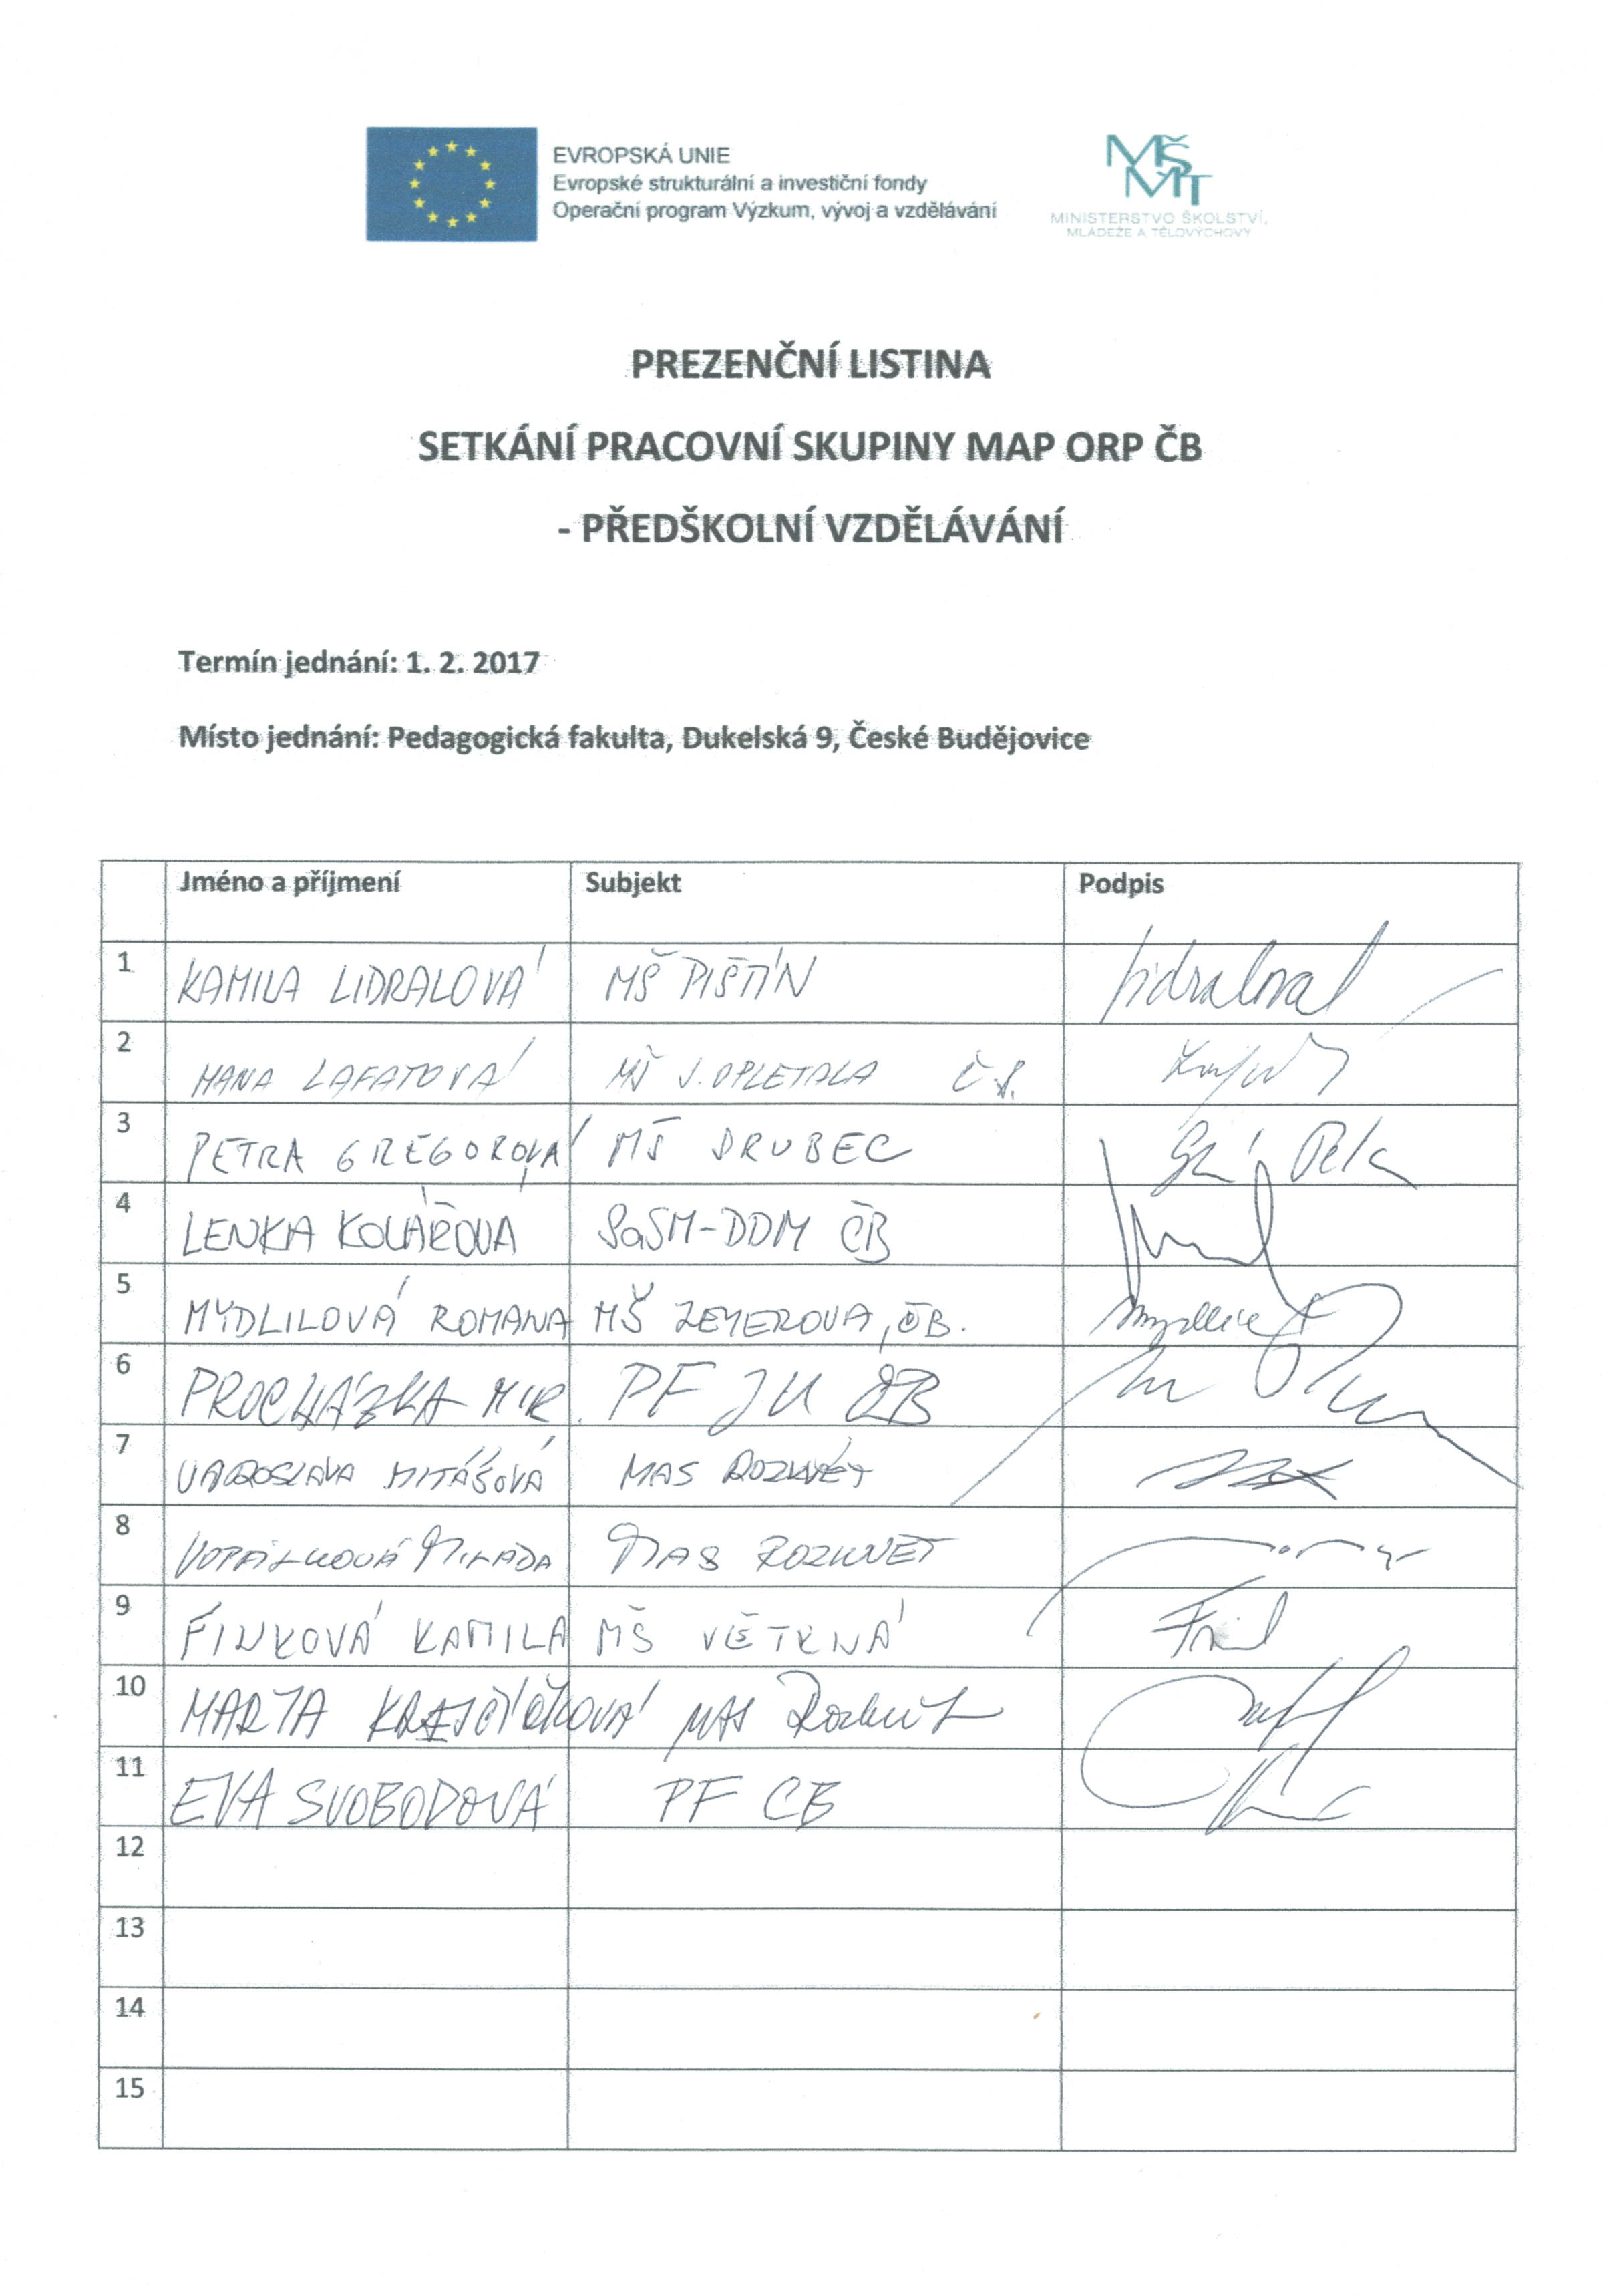 EVROPSKÁ UNIE
Evropské strukturální a investiční fondy
Operační program Výzkum, vývoj a vzdělávání
MŠMT
MINISTERSTVO ŠKOLSTVÍ,
MLÁDEŽE A TĚLOVÝCHOVY
PREZENČNÍ LISTINA
SETKÁNÍ PRACOVNÍ SKUPINY MAP ORP ČB
- PŘEDŠKOLNÍ VZDĚLÁVÁNÍ
Termín jednání: 1. 2. 2017
Místo jednání: Pedagogická fakulta, Dukelská 9, České Budějovice
Jméno a příjmení Subjekt Podpis
1 KAMILA LIDRALOVÁ MŠ PIŠTÍN Lidralová
2 HANA LAFATOVÁ MŠ J. OPLETALA Č.B.
3 PETRA GREGOROVÁ MŠ DRUBEC
4 LENKA KOLÁŘOVÁ SaSM-DDM ČB
5 MYDLILOVÁ ROMANA MŠ ZEYEROVA, ČB.
6 PROCHÁZKA MIR. PF JU ČB
7 JAROSLAVA MITÁŠOVÁ MAS ROZKVĚT
8 VOPÁLKOVÁ MILADA MAS ROZKVĚT
9 FINKOVÁ KAMILA MŠ VĚTRNÁ
10 MARTA KREJČIČKOVÁ MAS Rozkvět
11 EVA SVOBODOVÁ PF CB
12
13
14
15